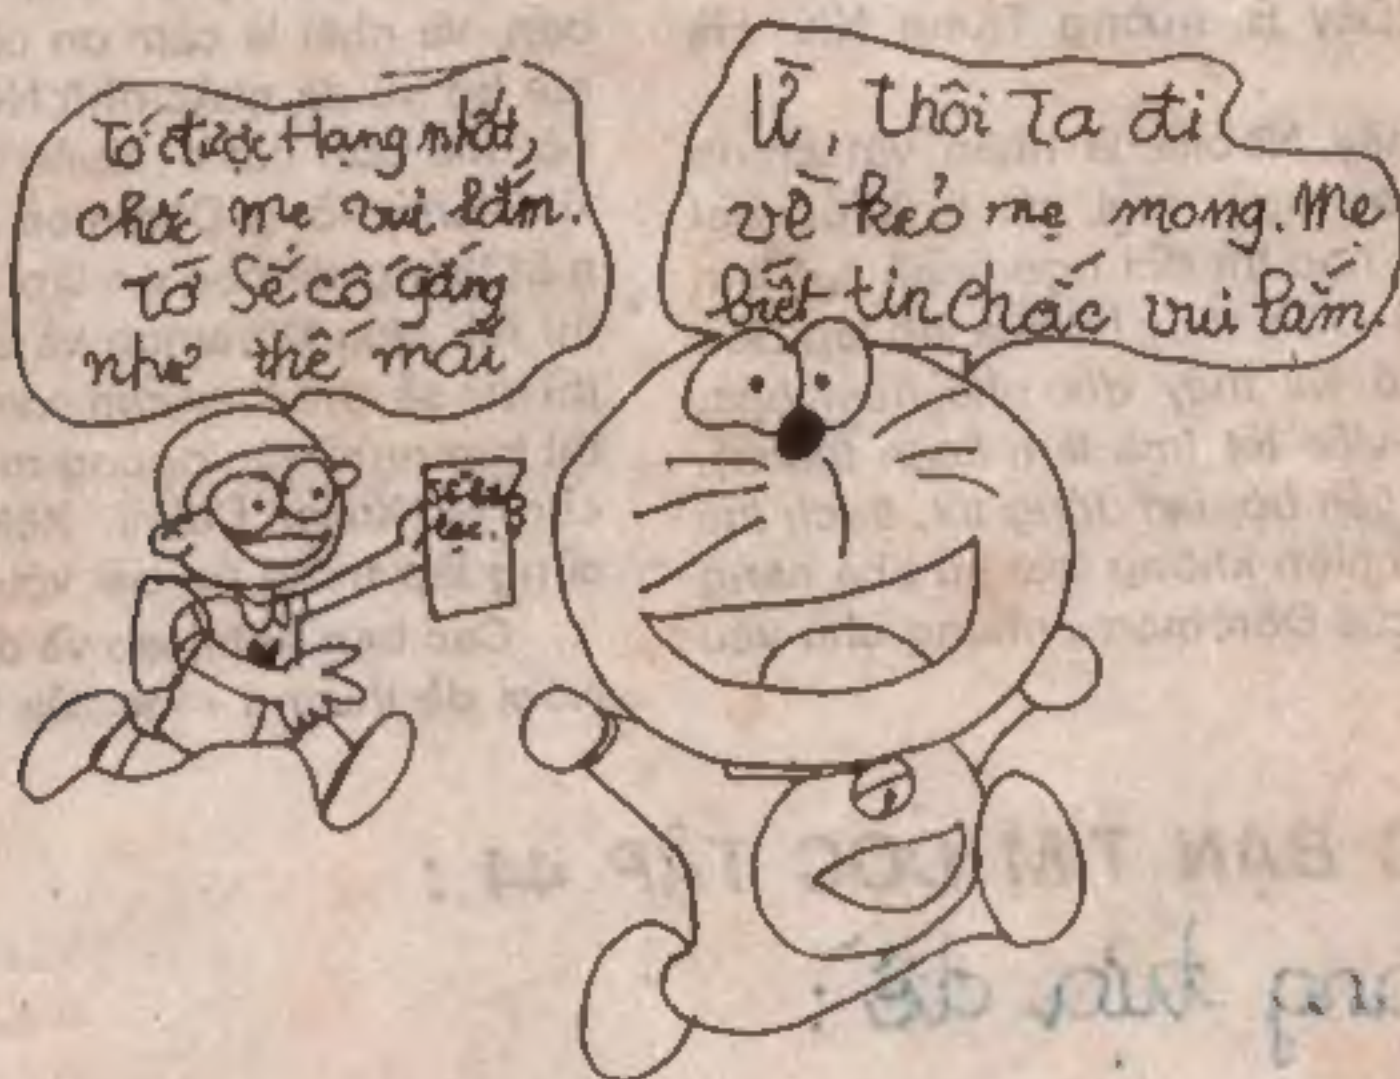 Tớ được Hạng nhất,
chắc mẹ vui lắm.
Tớ Sẽ cố gắng
như thế mãi
Ừ, thôi Ta đi
về kẻo mẹ mong. Mẹ
biết tin chắc vui lắm.
Sổ liên
lạc.